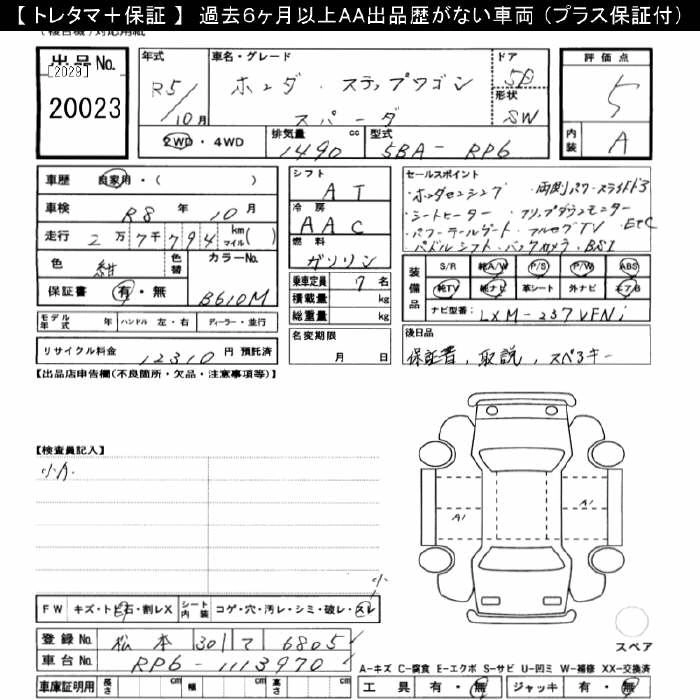 【 トレタマ＋保証 】 過去６ヶ月以上ＡＡ出品歴がない車両 （プラス保証付）
出品No.
[2029]
20023
年式 R5/10月
車名・グレード
ホンダ・ステップワゴン
スパーダ
ドア 5D
形状 SW
評価点 5
内装 A
2WD・4WD
排気量 1490 cc
型式 5BA-RP6
車歴 自家用・( )
車検 R8 年 10 月
走行 2万7千794 km マイル( )
色 紺 色替 カラーNo. B610M
保証書 有・無
モデル年式 年 ハンドル 左・右 ディーラー・並行
リサイクル料金 12310 円 預託済
シフト AT
冷房 AAC
燃料 ガソリン
乗車定員 7 名
積載量 kg
総重量 kg
名変期限 月 日
セールスポイント
・ホンダセンシング ・両側パワースライドドア
・シートヒーター ・フリップダウンモニター
・パワーテールゲート・フルセグTV ・ETC
・パドルシフト・バックカメラ・BSI
装備品 S/R 純A/W P/S P/W ABS
純TV 純ナビ 革シート 外ナビ エアB
ナビ型番: LXM-237VFNi
後日品
保証書、取説、スペアキー
【出品店申告欄(不良箇所・欠品・注意事項等)】
【検査員記入】
小キズ
A1
A1
FW キズ・トビ石・割レX シート内装 コゲ・穴・汚レ・シミ・破レ・スレ
小
登録No. 松本 301 て 6805
車台No. RP6-1113970
スペア
A-キズ C-腐食 E-エクボ S-サビ U-凹ミ W-補修 XX-交換済
車庫証明用 長さ cm 幅 cm 高さ cm 工具 有・無 ジャッキ 有・無